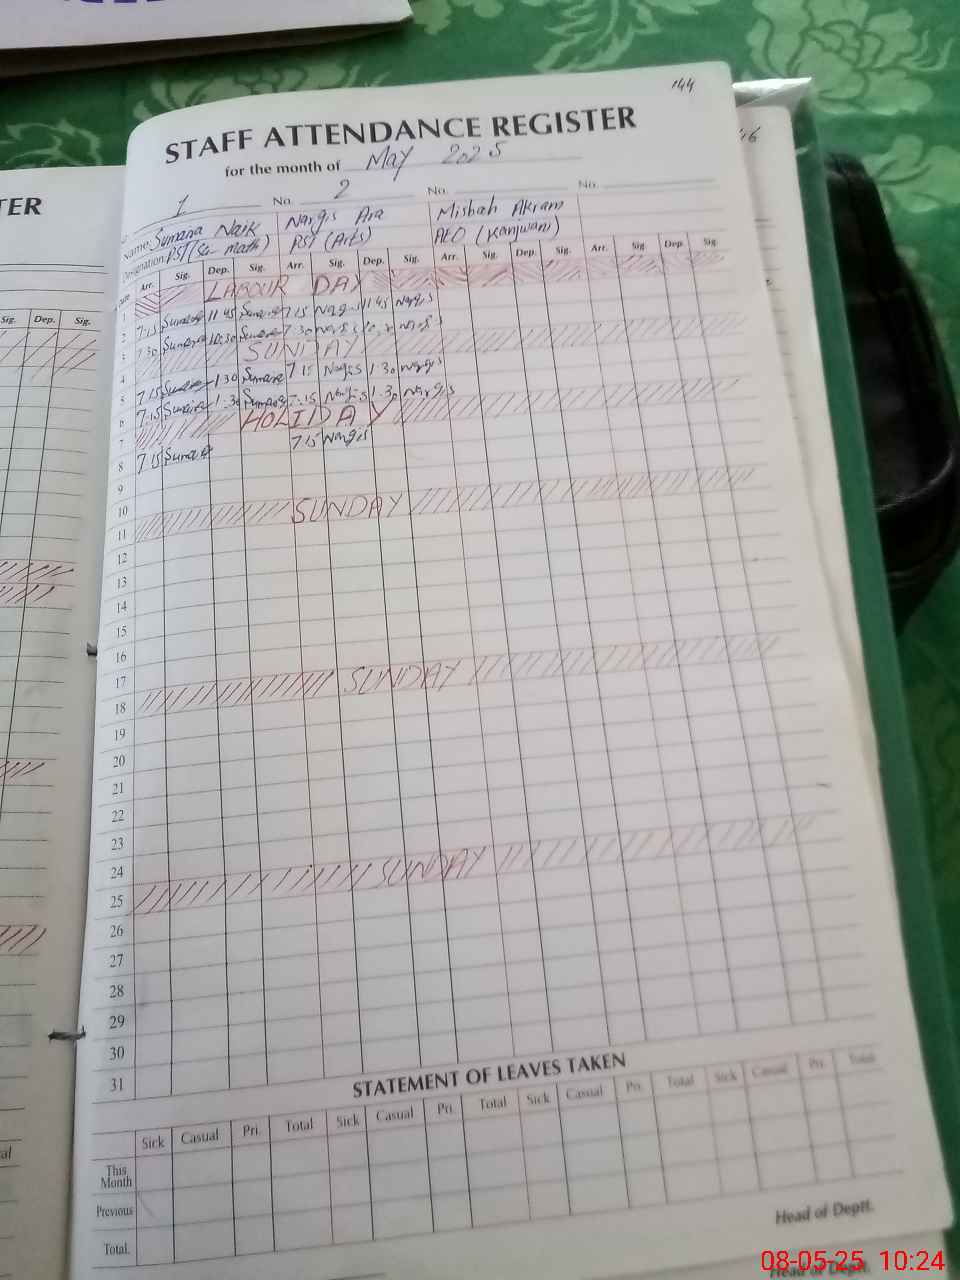 144
STAFF ATTENDANCE REGISTER
for the month of May 2025
1 No. 2 No. No.
Name: Sumaira Naik Nargis Ara Misbah Akram
Designation: PST (Sci-Math) PST (Arts) AEO (Kanjwani)
Date Arr. Sig. Dep. Sig. Arr. Sig. Dep. Sig. Arr. Sig. Dep. Sig. Arr. Sig. Dep. Sig.
1 LABOUR DAY
2 7:15 Sumaira 11:45 Sumaira 7:15 Nargis 11:45 Nargis
3 7:30 Sumaira 10:30 Sumaira 7:30 Nargis Nargis
4 SUNDAY
5 7:15 Sumaira 1:30 Sumaira 7:15 Nargis 1:30 Nargis
6 7:15 Sumaira 1:30 Sumaira 7:15 Nargis 1:30 Nargis
7 HOLIDAY
8 7:15 Sumaira 7:15 Nargis
9
10
11 SUNDAY
12
13
14
15
16
17
18 SUNDAY
19
20
21
22
23
24
25 SUNDAY
26
27
28
29
30
31
STATEMENT OF LEAVES TAKEN
Sick Casual Pri. Total Sick Casual Pri. Total Sick Casual Pri. Total Sick Casual Pri. Total
This Month
Previous
Total.
Head of Deptt.
Head of Deptt.
TER
Sig. Dep. Sig.
46
08-05-25 10:24